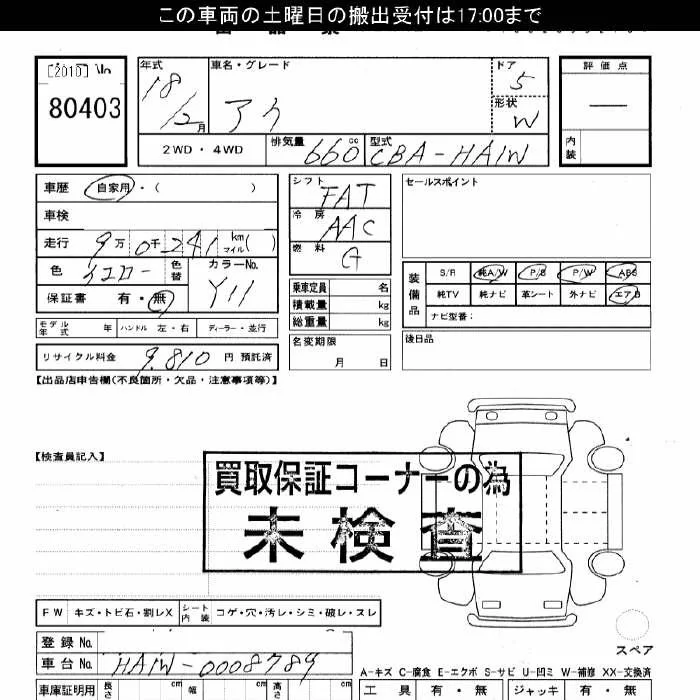 この車両の土曜日の搬出受付は17:00まで
[2010] No
80403
年式 18/12月
車名・グレード アイ
ドア 5
形状 W
評価点 —
内装
2WD・4WD
排気量 660cc
型式 CBA-HA1W
車歴 自家用・( )
車検
走行 9万0千241 km マイル( )
色 イエロー 色替
カラーNo. Y11
保証書 有・無
モデル年式 年 ハンドル 左・右 ディーラー・並行
リサイクル料金 9,810 円 預託済
シフト FAT
冷房 AAC
燃料 G
乗車定員 名
積載量 kg
総重量 kg
名変期限 月 日
セールスポイント
装備品
S/R 純A/W P/S P/W ABS
純TV 純ナビ 革シート 外ナビ エアB
ナビ型番:
後日品
【出品店申告欄(不良箇所・欠品・注意事項等)】
【検査員記入】
買取保証コーナーの為
未検査
FW キズ・トビ石・割レX シート内装 コゲ・穴・汚レ・シミ・破レ・スレ
スペア
登録 No.
車台 No. HA1W-0008789
A-キズ C-腐食 E-エクボ S-サビ U-凹ミ W-補修 XX-交換済
車庫証明用 長さ cm 幅 cm 高さ cm
工具 有・無 ジャッキ 有・無